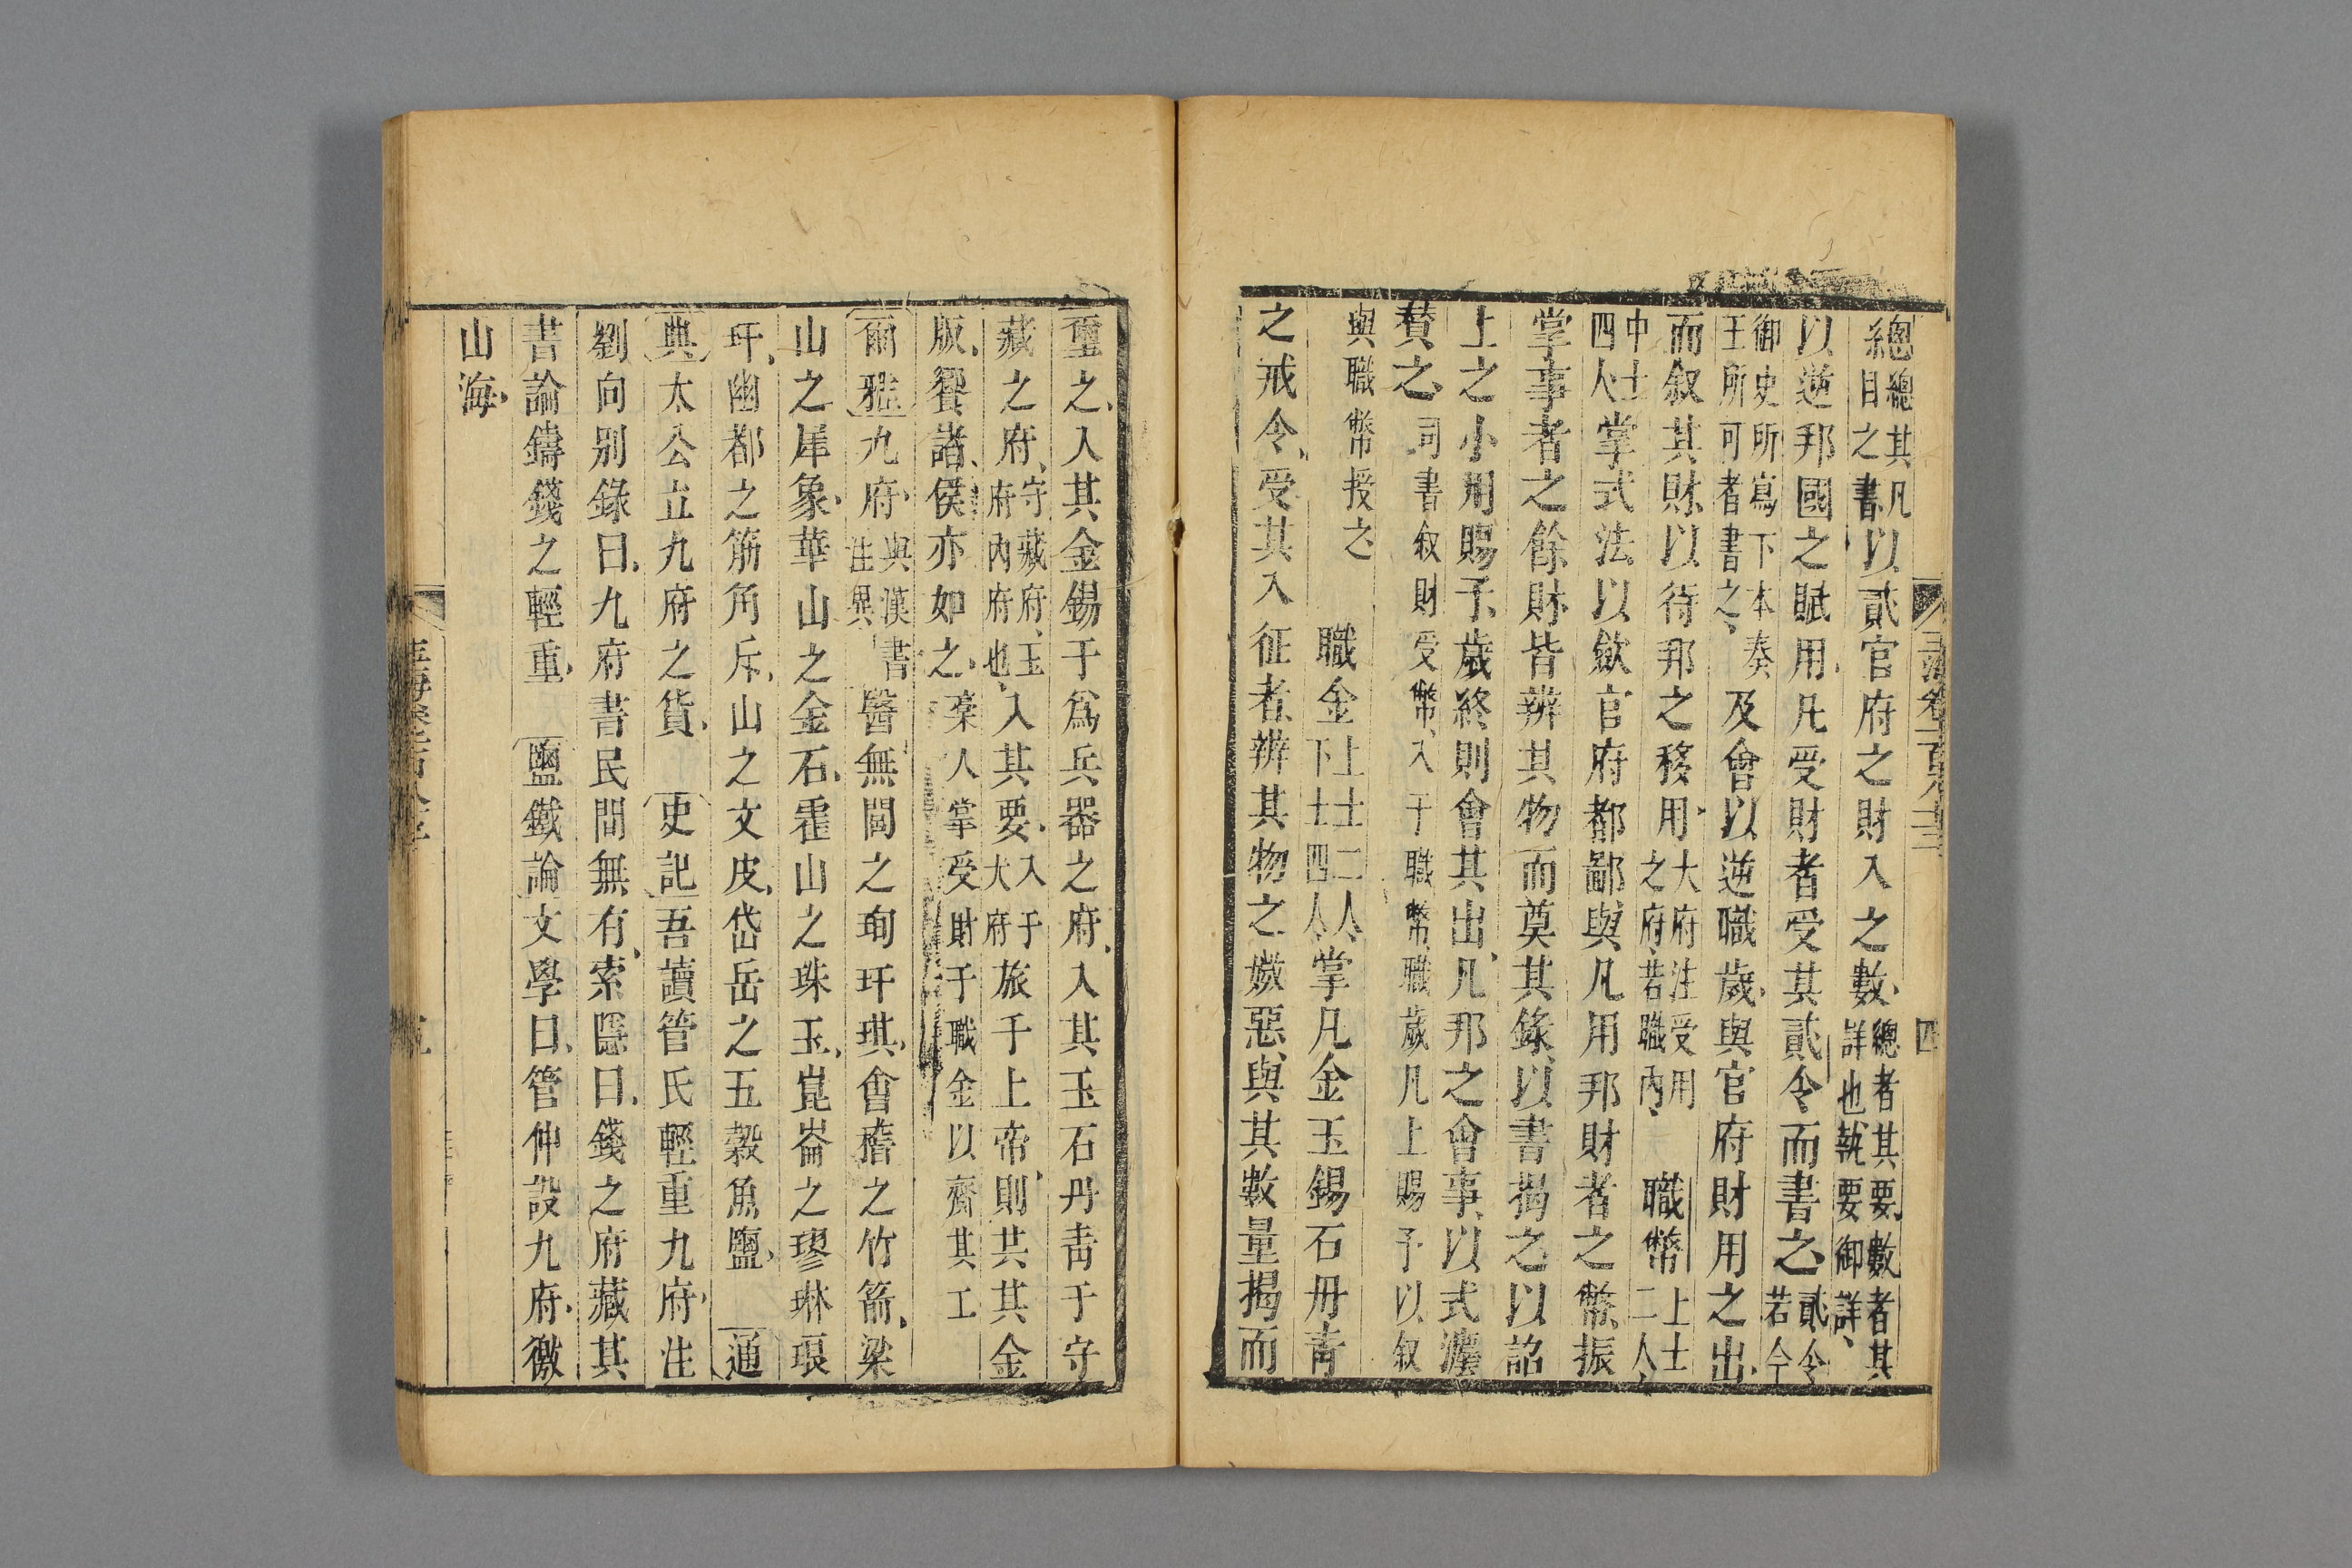 總總其凡目之書以貳官府之財入之數總者其要數者其詳也執要御詳
以逆邦國之賦用凡受財者受其貳令而書之貳令若今
御史所寫下本奏王所可者書之及會以逆職歲與官府財用之出
而叙其財以待邦之移用大府注受用之府若職內職幣上士二人
中士四人掌式法以斂官府都鄙與凡用邦財者之幣振
掌事者之餘財皆辨其物而奠其錄以書揭之以詔
上之小用賜予歲終則會其出凡邦之會事以式灋
贊之司書叙財受幣入于職幣職歲凡上賜予以叙
與職幣授之職金上士二人下士四人掌凡金玉錫石丹青
之戒令受其入征者辨其物之媺惡與其數量揭而
四
璽之入其金錫于爲兵器之府入其玉石丹青于守
藏之府守藏府玉府內府也入其要入于大府旅于上帝則共其金
版饗諸侯亦如之槀人掌受財于職金以齎其工
爾雅九府與漢書注異醫無閭之珣玗琪會稽之竹箭梁
山之犀象華山之金石霍山之珠玉崑崙之璆琳琅
玕幽都之筋角斥山之文皮岱岳之五穀魚鹽通
典太公立九府之貨史記吾讀管氏輕重九府注
劉向别錄曰九府書民間無有索隱曰錢之府藏其
書論鑄錢之輕重鹽鐵論文學曰管仲設九府徼
山海